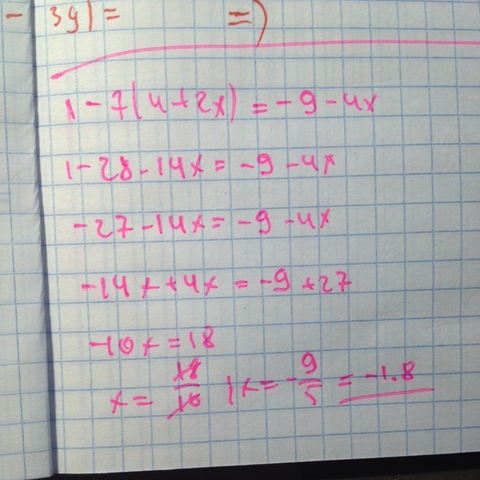 - 3y1 = =)
1 - 7(4+2x) = -9 - 4x
1 - 28 - 14x = -9 - 4x
-27 - 14x = -9 - 4x
-14x + 4x = -9 + 27
-10x = 18
x = 18/10 | x = -9/5 = -1.8